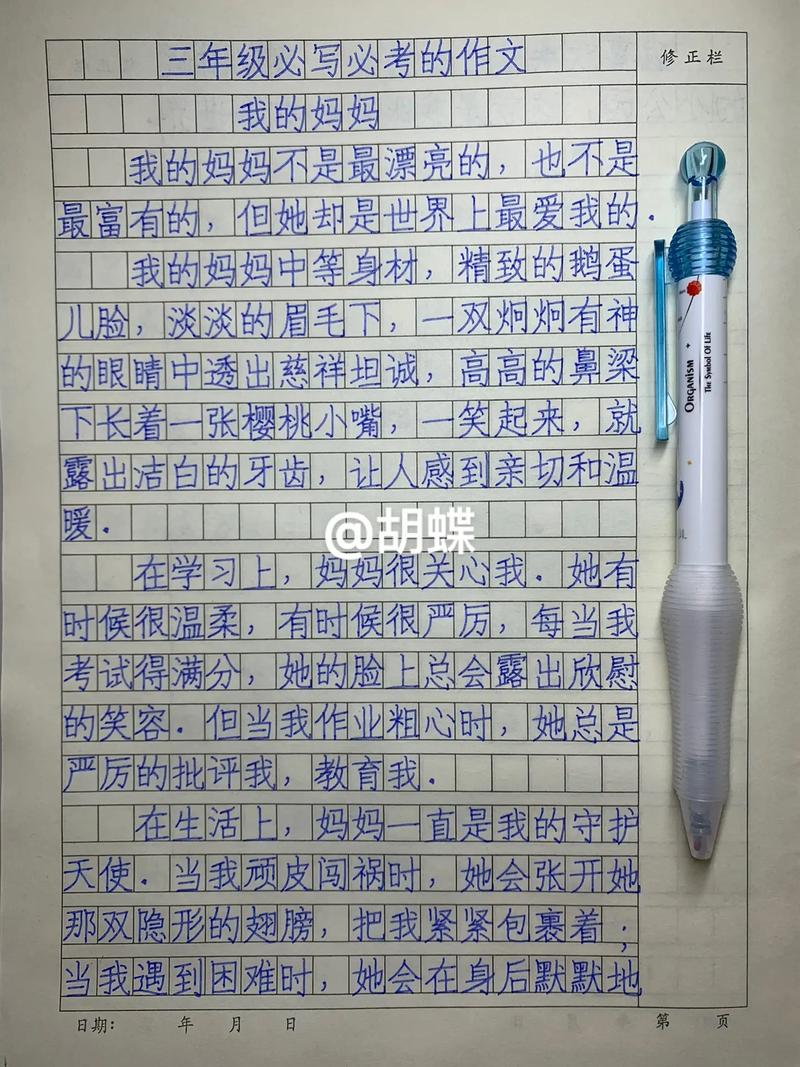 三年级必写必考的作文
修正栏
我的妈妈
我的妈妈不是最漂亮的，也不是
最富有的，但她却是世界上最爱我的.
我的妈妈中等身材，精致的鹅蛋
儿脸，淡淡的眉毛下，一双炯炯有神
的眼睛中透出慈祥坦诚，高高的鼻梁
下长着一张樱桃小嘴，一笑起来，就
露出洁白的牙齿，让人感到亲切和温
暖.
@胡蝶
在学习上，妈妈很关心我.她有
时候很温柔，有时候很严厉，每当我
考试得满分，她的脸上总会露出欣慰
的笑容.但当我作业粗心时，她总是
严厉的批评我，教育我.
在生活上，妈妈一直是我的守护
天使.当我顽皮闯祸时，她会张开她
那双隐形的翅膀，把我紧紧包裹着；
当我遇到困难时，她会在身后默默地
日期： 年 月 日
第 页
ORGANISM
The Symbol Of Life